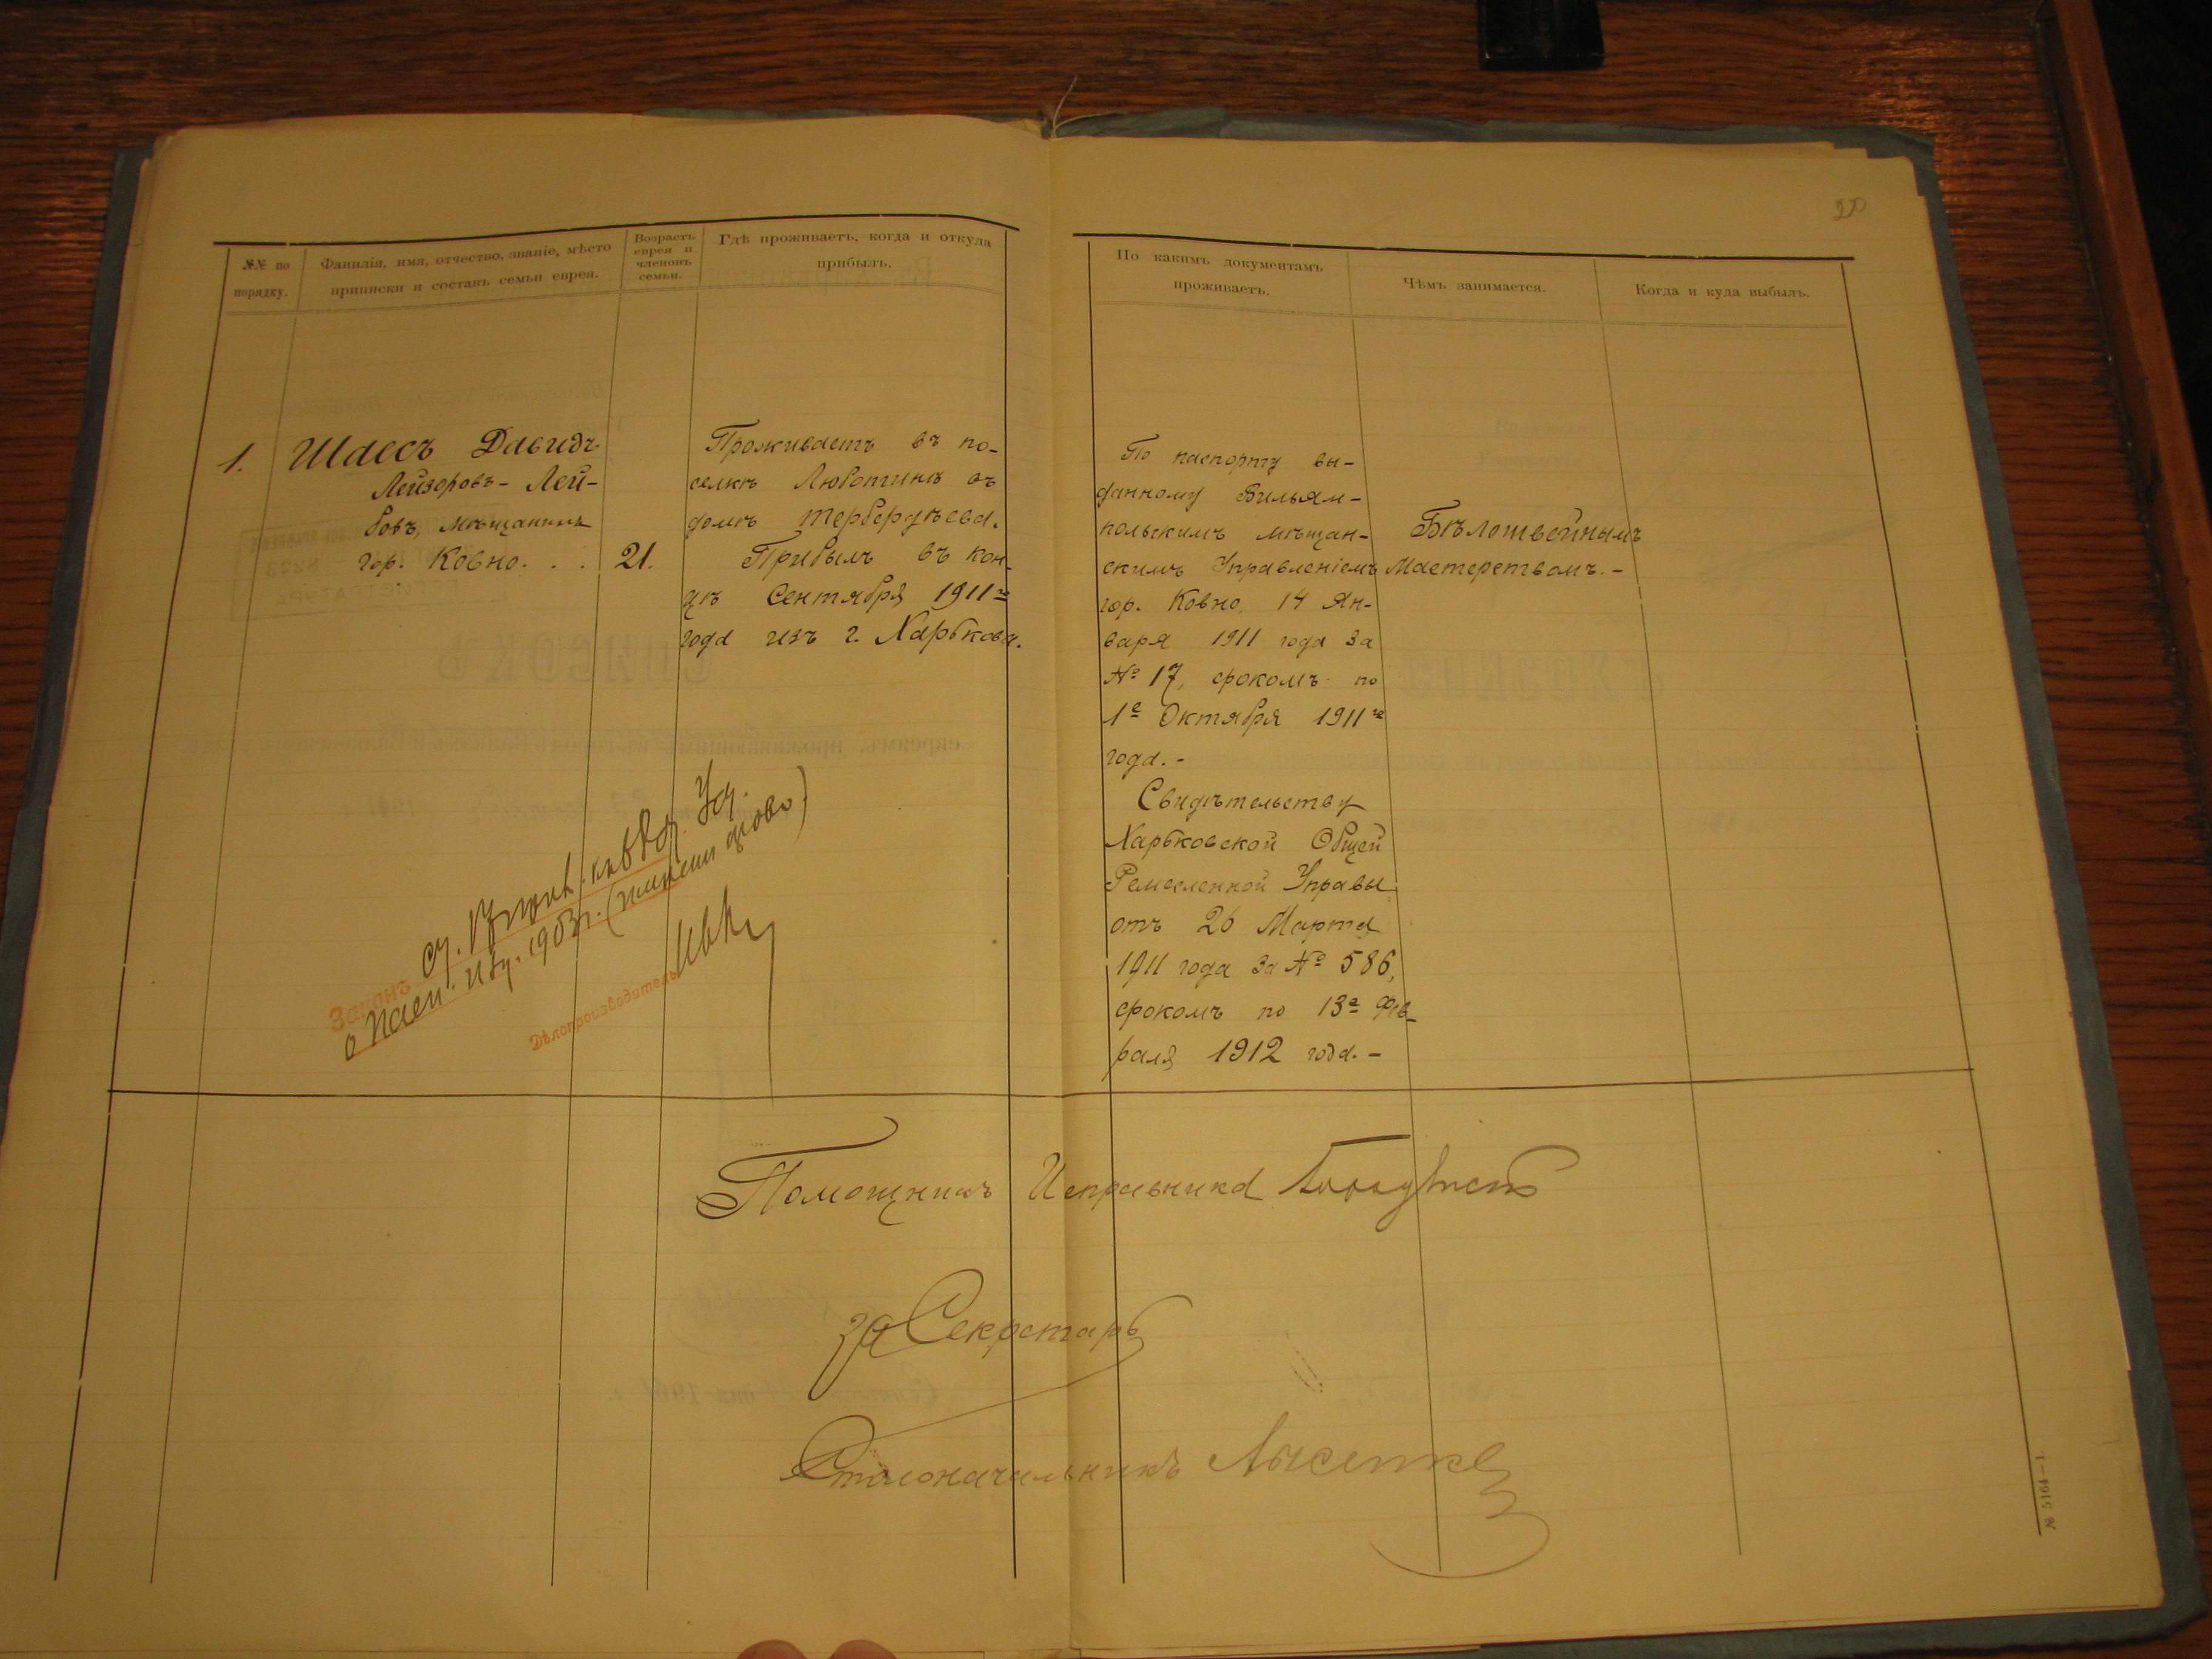 20
№№ по
порядку.
Фамилія, имя, отчество, званіе, мѣсто
приписки и составъ семьи еврея.
Возрастъ
еврея и
членовъ
семьи.
Гдѣ проживаетъ, когда и откуда
прибылъ.
По какимъ документамъ
проживаетъ.
Чѣмъ занимается.
Когда и куда выбылъ.
1.
Шаесъ Давидъ
Лейзоровъ-Лей-
бовъ, мѣщанинъ
гор. Ковно. . .
21.
Проживаетъ въ по-
селкѣ Люботинѣ въ
домѣ
Прибылъ въ кон-
цѣ Сентября 1911 го
года изъ г. Харькова.
По паспорту вы-
данному Вильям-
польскимъ мѣщан-
скимъ Управленіемъ
гор. Ковно, 14 Ян-
варя 1911 года за
№ 17, срокомъ по
1е Октября 1911 го
года.-
Свидѣтельству
Харьковской Общей
Ремесленной Управы
отъ 26 Марта
1911 года за № 586,
срокомъ по 13е Фев-
раля 1912 года.-
Бѣлошвейнымъ
Мастерствомъ.-
Законъ
о Пасп. изд. 1903 г.
Дѣлопроизводитель
Помощникъ Исправника
За Секретаръ
Столоначальникъ Лысенко
№ 5164—1.